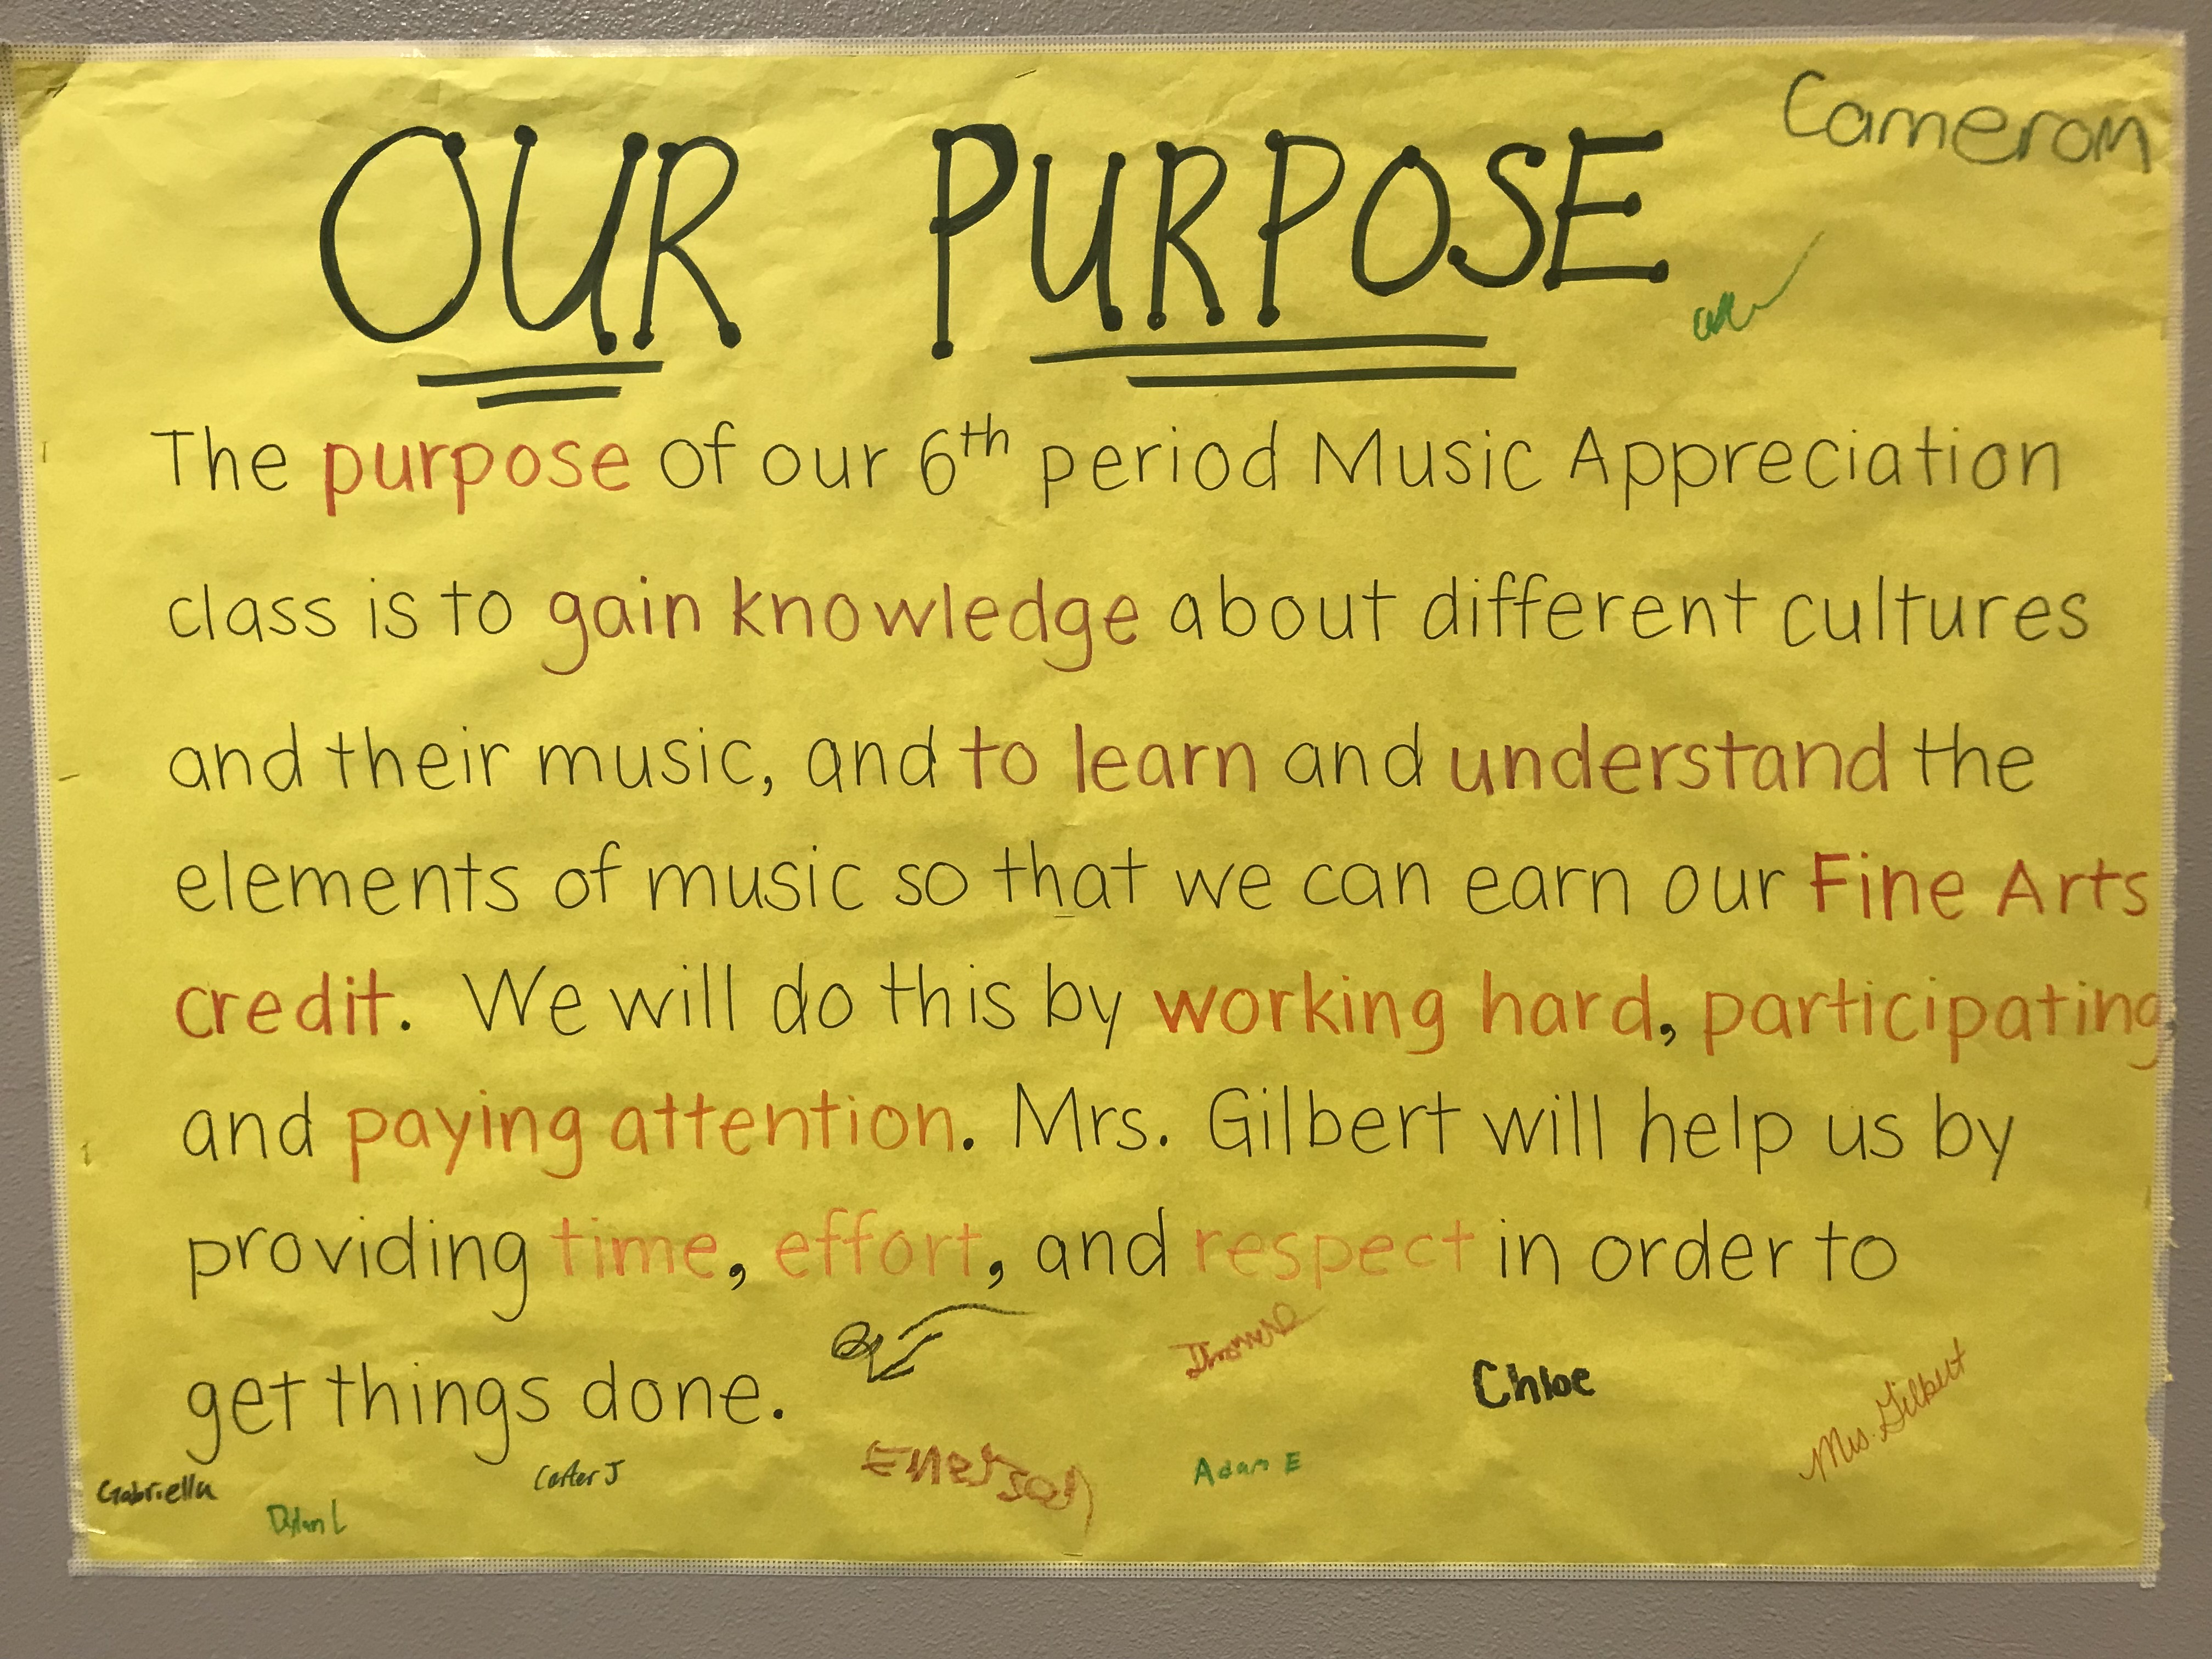 Cameron
OUR PURPOSE
The purpose of our 6th period Music Appreciation
class is to gain knowledge about different cultures
and their music, and to learn and understand the
elements of music so that we can earn our Fine Arts
credit. We will do this by working hard, participating
and paying attention. Mrs. Gilbert will help us by
providing time, effort, and respect in order to
get things done.
Chloe
Mrs. Gilbert
Emerson
Adam E
Carter J
Gabriella
Dylan L